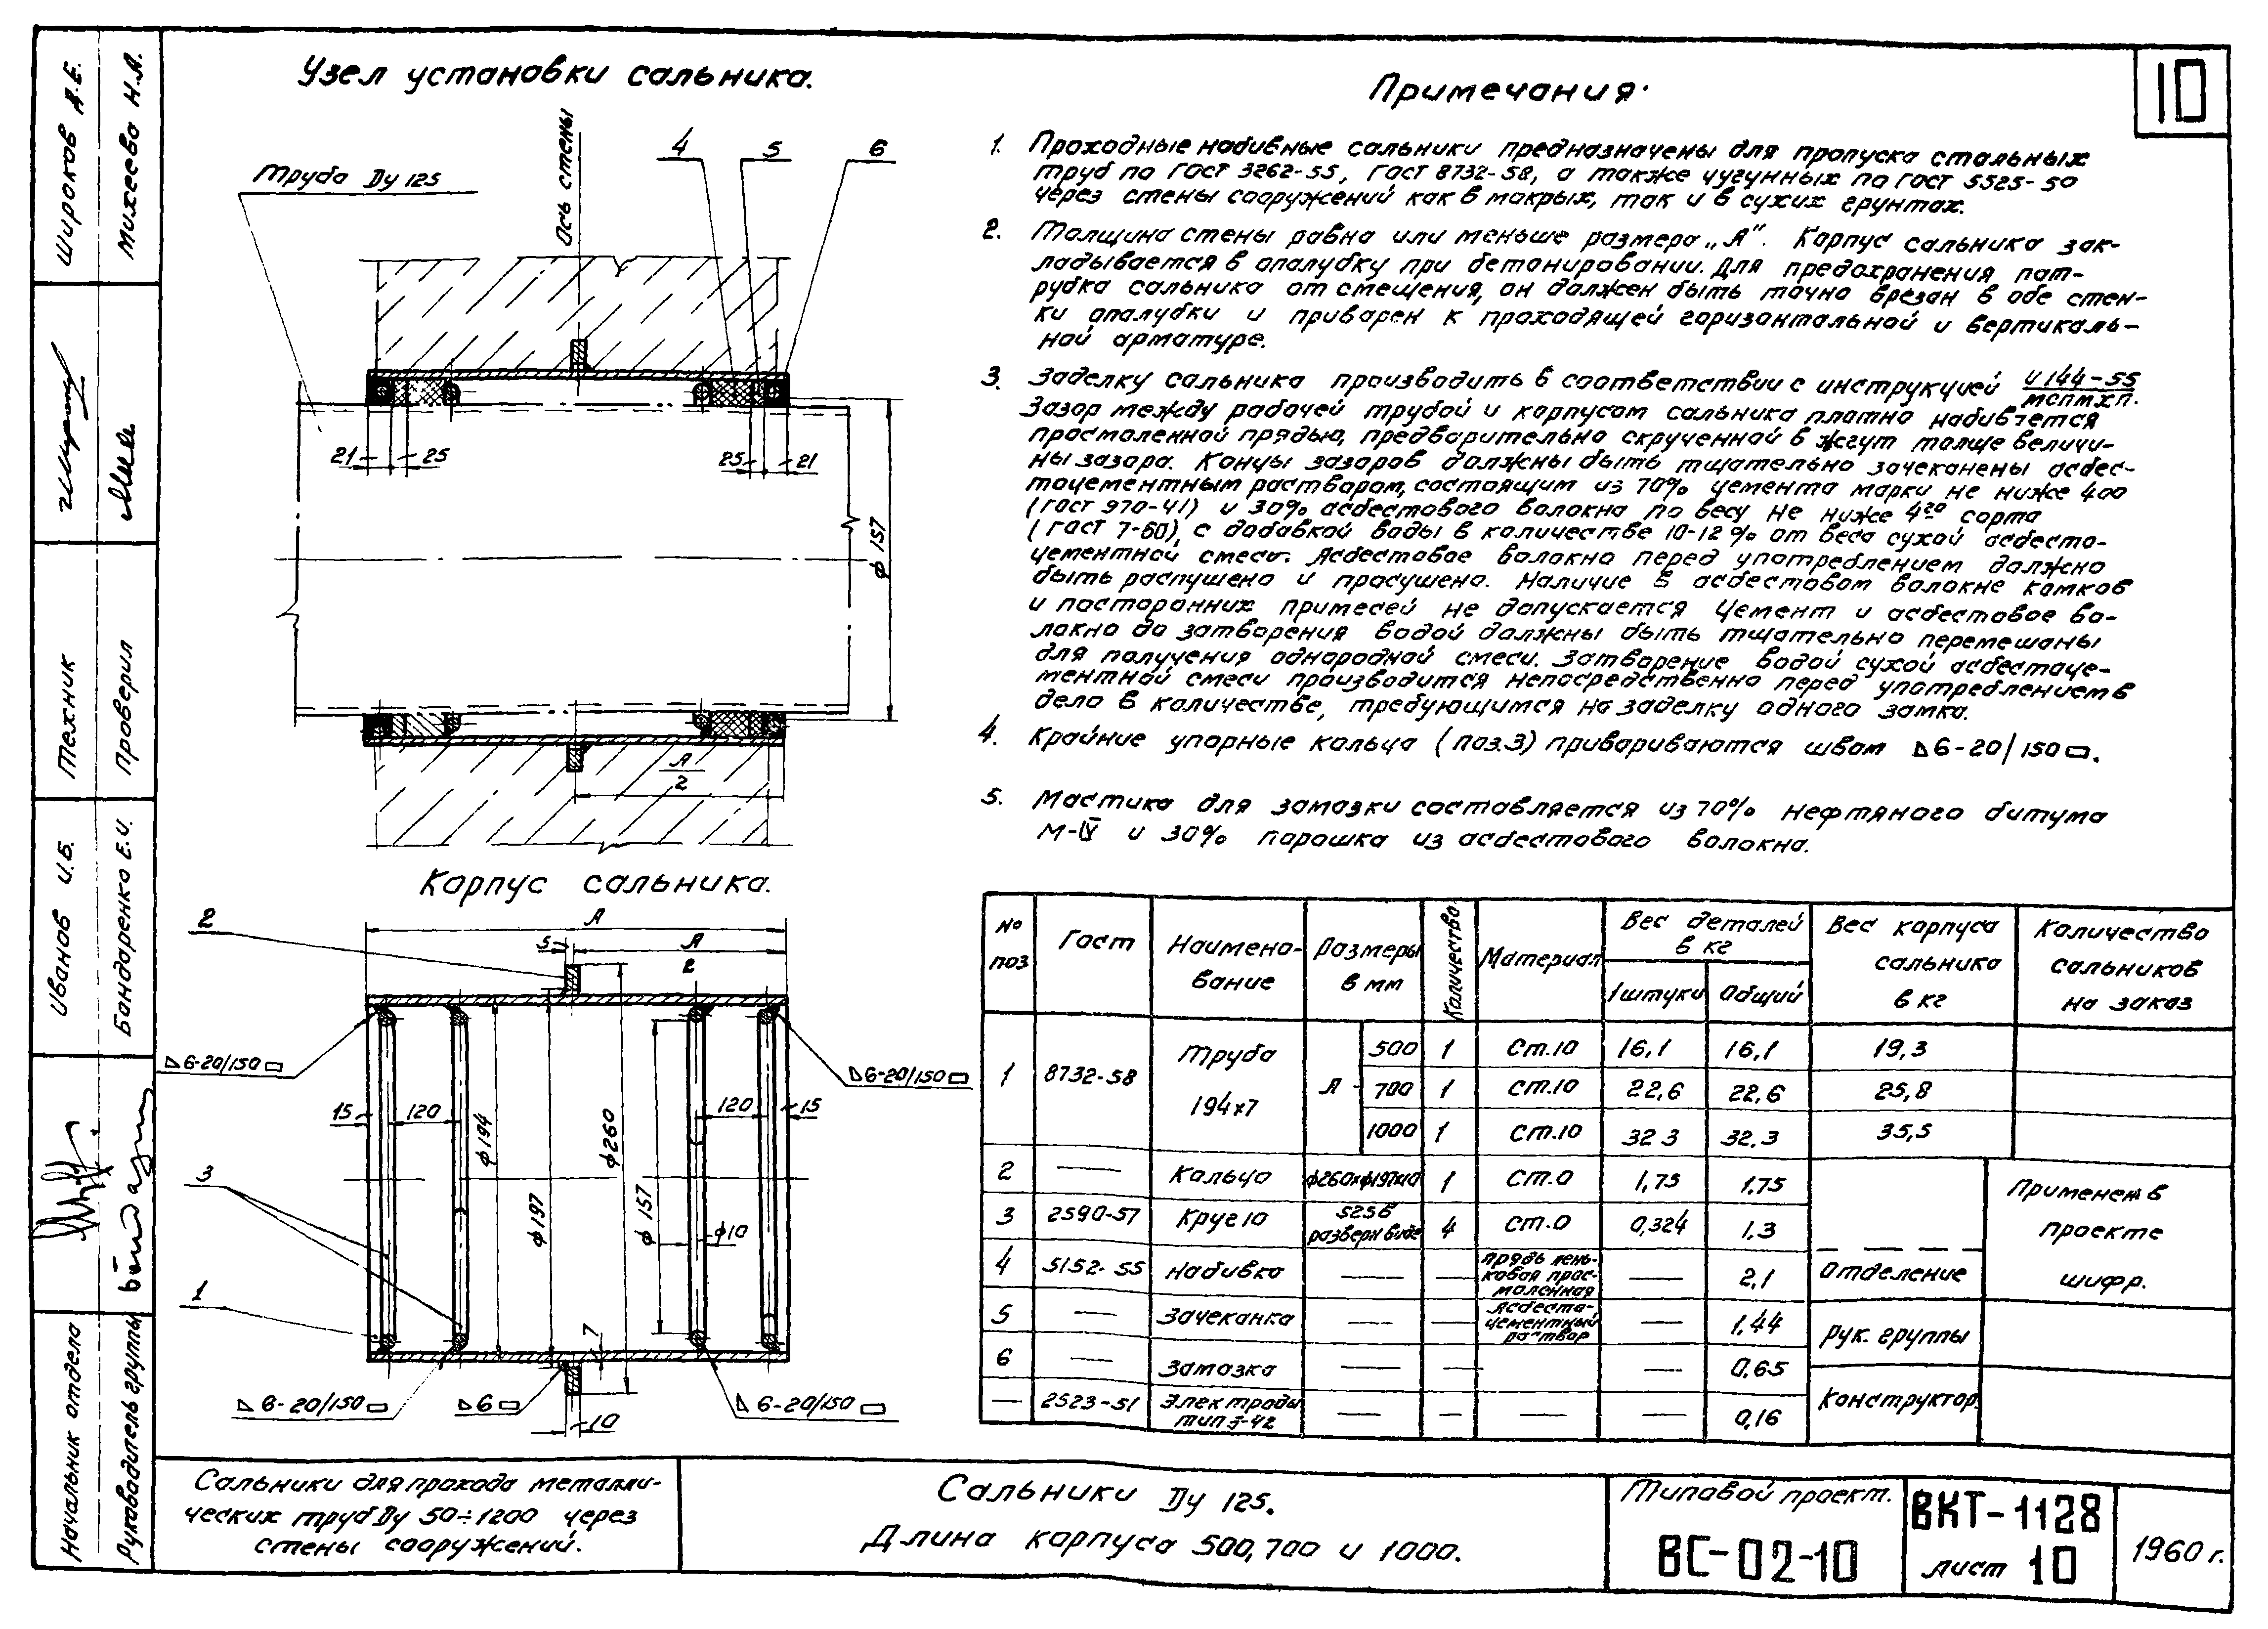 Узел установки сальника.
Труба Dу 125
Ось стены
4
5
6
21
25
25
21
ф 157
А
2
Корпус сальника.
2
А
5
А
2
△6-20/150
△6-20/150
15
120
120
15
ф194
ф197
ф260
ф157
ф10
3
1
7
△6-20/150
△6
△6-20/150
10
10
Примечания.
1. Проходные набивные сальники предназначены для пропуска стальных
труб по ГОСТ 3262-55, ГОСТ 8732-58, а также чугунных по ГОСТ 5525-50
через стены сооружений как в мокрых, так и в сухих грунтах.
2. Толщина стены равна или меньше размера „А“. Корпус сальника зак-
ладывается в опалубку при бетонировании. Для предохранения пат-
рубка сальника от смещения, он должен быть точно врезан в обе стен-
ки опалубки и приварен к проходящей горизонтальной и вертикаль-
ной арматуре.
3. Заделку сальника производить в соответствии с инструкцией И144-55
МСПМХП.
Зазор между рабочей трубой и корпусом сальника плотно набивается
просмоленной прядью, предварительно скрученной в жгут толще величи-
ны зазора. Концы зазоров должны быть тщательно зачеканены асбес-
тоцементным раствором, состоящим из 70% цемента марки не ниже 400
(ГОСТ 970-41) и 30% асбестового волокна по весу не ниже 4го сорта
(ГОСТ 7-60), с добавкой воды в количестве 10-12% от веса сухой асбесто-
цементной смеси. Асбестовое волокно перед употреблением должно
быть распушено и просушено. Наличие в асбестовом волокне комков
и посторонних примесей не допускается Цемент и асбестовое во-
локно до затворения водой должны быть тщательно перемешаны
для получения однородной смеси. Затворение водой сухой асбестоце-
ментной смеси производится непосредственно перед употреблением в
дело в количестве, требующимся на заделку одного замка.
4. Крайние упорные кольца (поз.3) привариваются швом △6-20/150.
5. Мастика для замазки составляется из 70% нефтяного битума
М-IV и 30% порошка из асбестового волокна.
№ поз
ГОСТ
Наимено-
вание
Размеры
в мм
Количество
Материал
Вес деталей
в кг
1 штуки
Общий
Вес корпуса
сальника
в кг
Количество
сальников
на заказ
1 8732-58 Труба 194х7 А
500 1 Ст.10 16,1 16,1 19,3
700 1 Ст.10 22,6 22,6 25,8
1000 1 Ст.10 32 3 32.3 35,5
2 — Кольцо ф260хф197х10 1 Ст.0 1,75 1.75
3 2590-57 Круг 10 525 в разверн виде 4 Ст.0 0,324 1.3
4 5152-55 Набивка — — прядь пень-
ковая прос-
моленная — 2,1
5 — Зачеканка — — Асбесто-
цементный
раствор — 1,44
6 — Замазка — — — 0,65
— 2523-51 Электроды
тип Э-42 — — — — 0,16
Отделение
Рук. группы
Конструктор.
Применен в
проекте
шифр.
Широков А.Е.
Михеева Н.А.
Техник
Проверил
Иванов И.Б.
Бондаренко Е.И.
Начальник отдела
Руководитель группы
Сальники для прохода металли-
ческих труб Dу 50÷1200 через
стены сооружений.
Сальники Dу 125.
Длина корпуса 500, 700 и 1000.
Типовой проект.
ВС-02-10
ВКТ-1128
лист 10
1960 г.